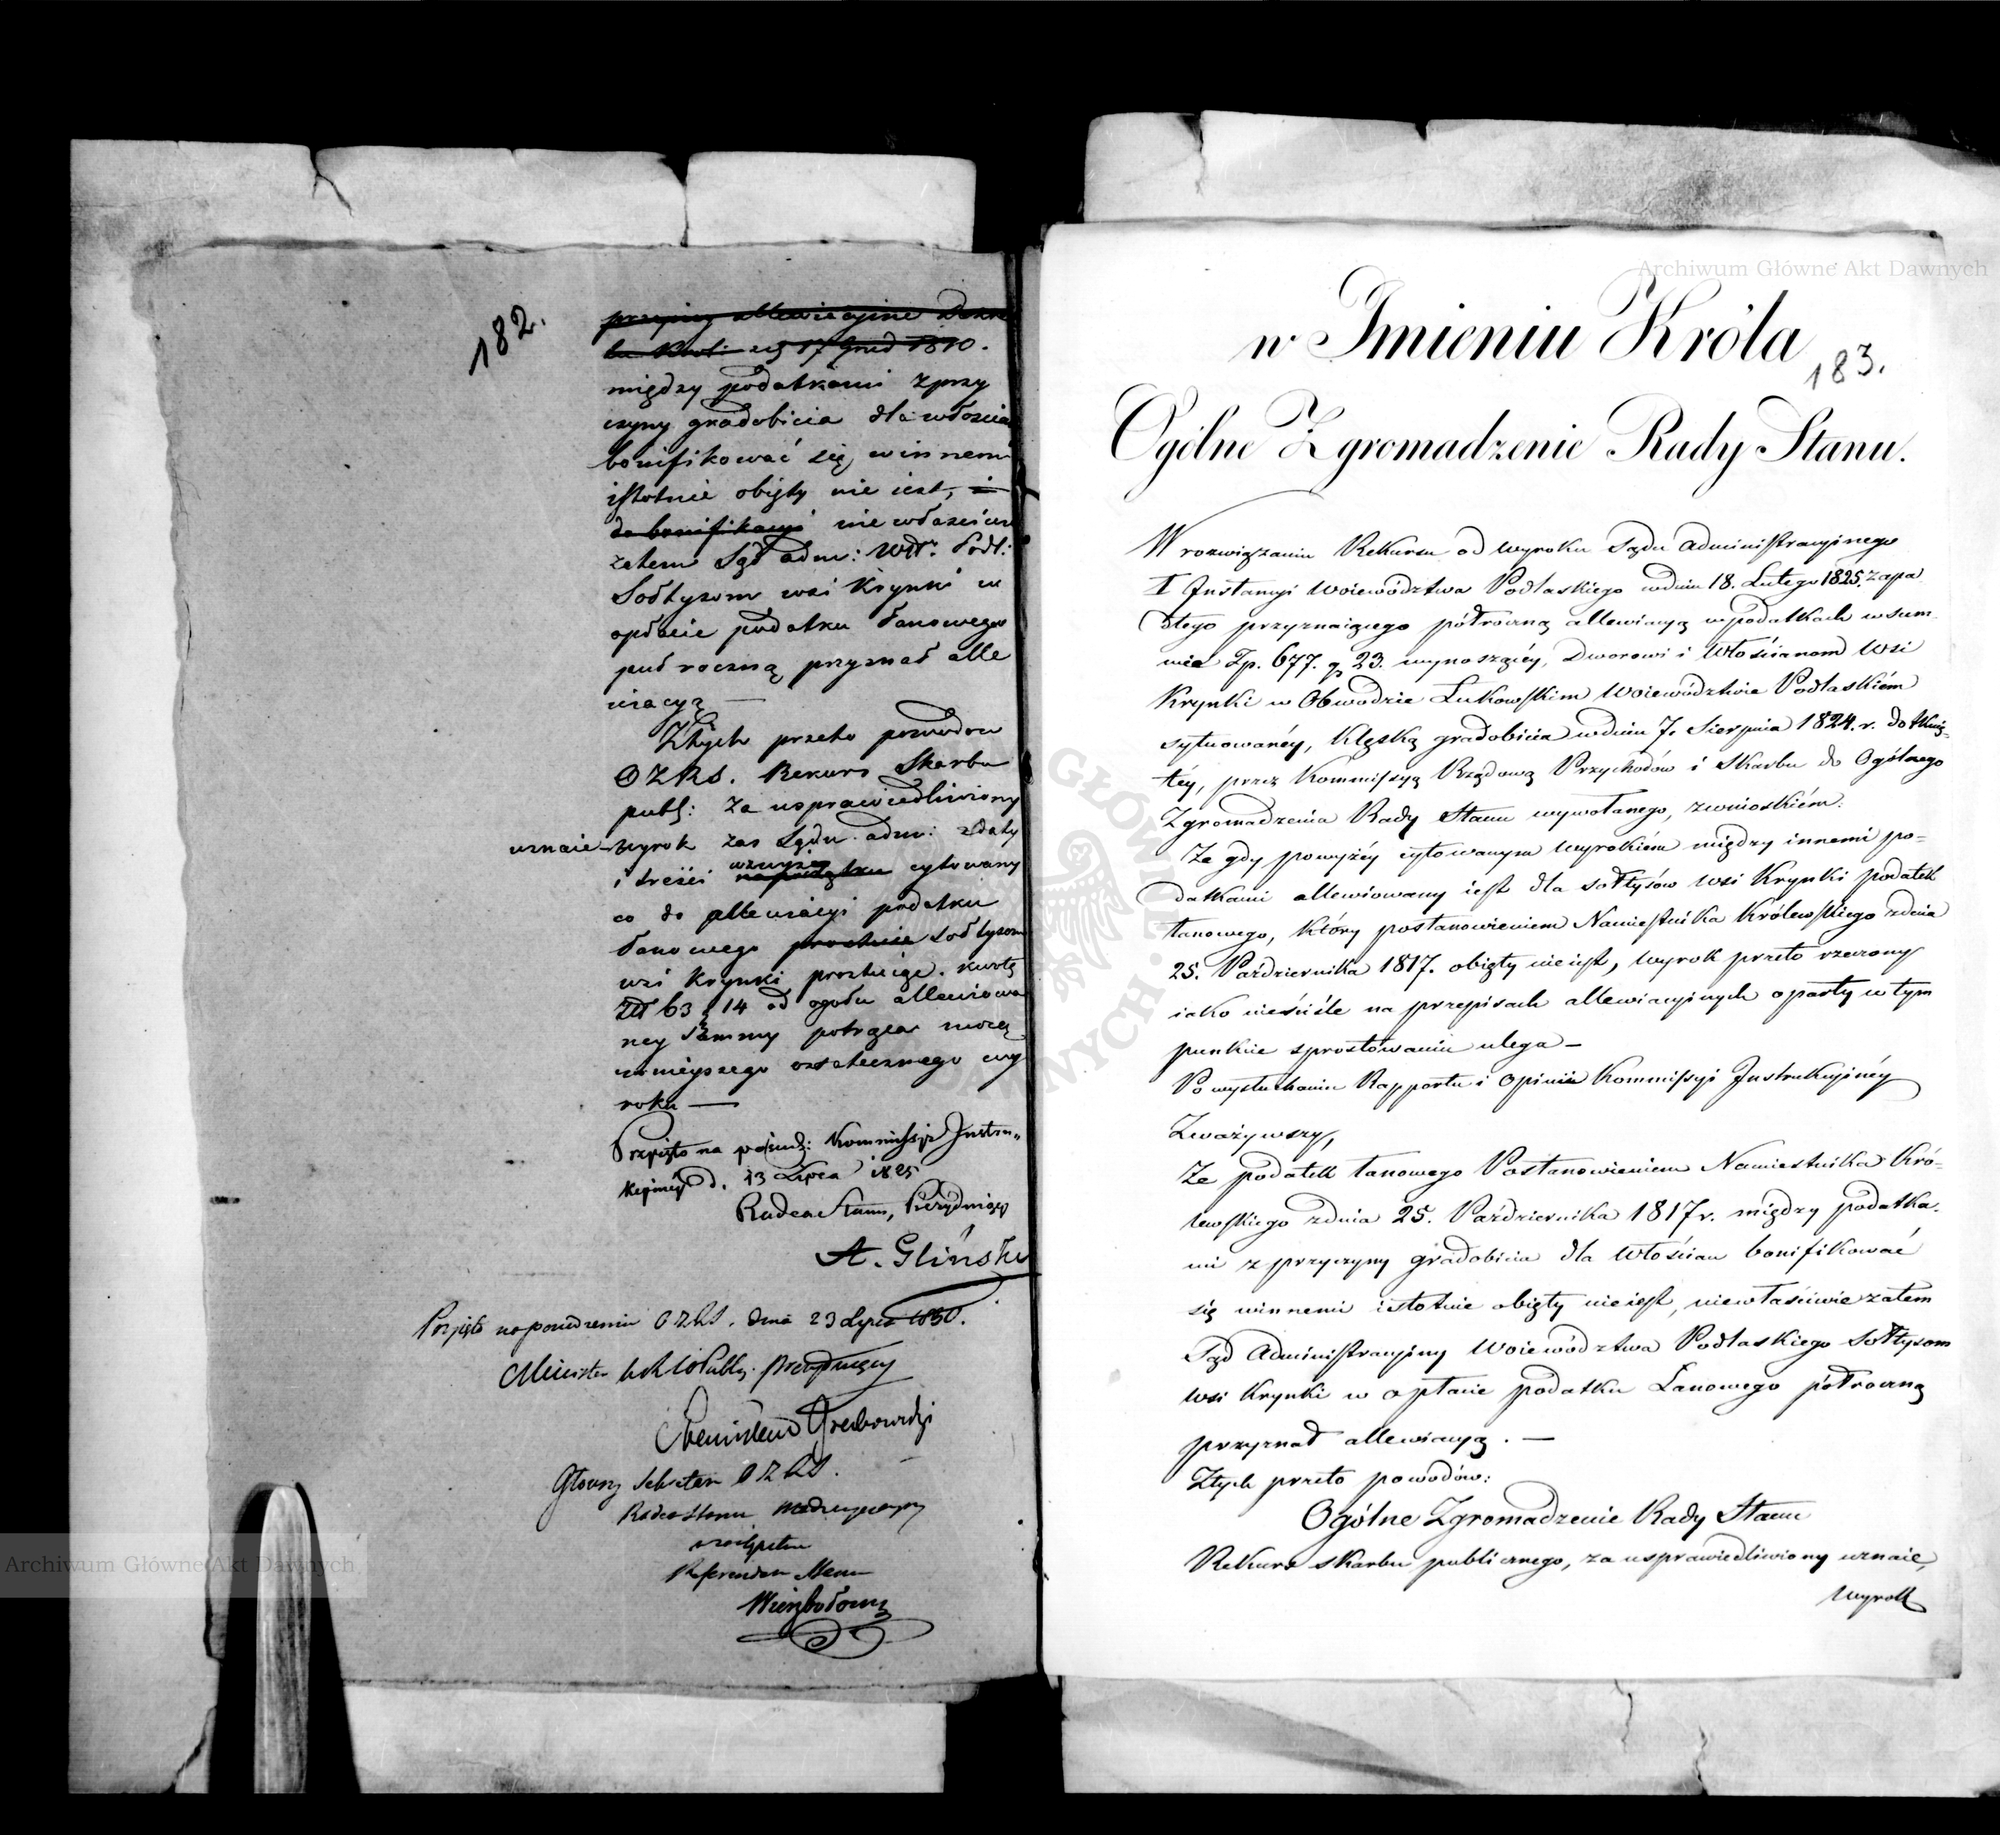 182.
przepisy allewiacyjne Dekre
tu Król: z d 17 Grud 1810.
między podatkami z przy
czyny gradobicia dla włościa
bonifikować się winnemi
istotnie obięty nie iest, i
do bonifikacyi niewłaściwie
zatem Sąd adm: Wdt. Podl:
Sołtysom wsi Krynki w
opłacie podatku łanowego
puł roczną przyznał alle
wiacyą —
Z tych przeto powodow
OZRS. Rekurs Skarbu
publ: za usprawiedliwiony
uznaie – wyrok zas Sądu adm: z daty
i treści wzwyż na początku cytowany
co do allewiacyi podatku
łanowego prostuie Sołtysom
wsi Krynki prostuiąc. kwotę
Zł 63 g 14 od ogołu allewiowa
ney Summy potrąca mocą
ninieyszego ostatecznego wy
roku —
Przyięto na posiedz: Kommissyi Instru„
kcyiney d. 13 Lipca 1825
Radca Stanu, Prezyduiący
A. Gliński
Przyięto na posiedzeniu OZRS. dnia 23 Lipca 1830.
Minister WR i O Publ. prezyduiący
Stanisław Grabowski
Głowny Sekretarz OZRS.
Radca Stanu Nadzwyczayny
w zastępstwie
Referendarz Stanu
Wierzbołowicz
w Imieniu Króla
183.
Ogólne Zgromadzenie Rady Stanu.
W rozwiązaniu Rekursu od wyroku Sądu Administracyinego
I Instancyi Woiewództwa Podlaskiego w dniu 18. Lutego 1825. zapa
dłego przyznaiącego półroczną allewiacyą w podatkach w sum-
mie Zp. 677. g 23. wynoszącéy, Dworowi i Włościanom Wsi
Krynki w Obwodzie Łukowskim Woiewództwie Podlaskiém
sytuowanéy, Klęską gradobicia w dniu 7. Sierpnia 1824. r. dotknię-
téy, przez Kommissyą Rządową Przychodów i Skarbu do Ogólnego
Zgromadzenia Rady Stanu wywołanego, z wnioskiém:
Ze gdy powyżéy cytowanym wyrokiem między innemi po-
datkami allewiowany iest dla sołtysów wsi Krynki podatek
łanowego, który postanowieniem Namiestnika Królewskiego z dnia
25. Października 1817. obięty nieiest, wyrok przeto rzeczony
iako nieściśle na przepisach allewiacyinych oparty w tym
punkcie sprostowaniu ulega –
Po wysłuchaniu Rapportu i Opinii Kommissyi Instrukcyinéy
Zważywszy,
Ze podatek łanowego Postanowieniem Namiestnika Kró-
lewskiego z dnia 25. Października 1817 r. między podatka-
mi z przyczyny gradobicia dla Włościan bonifikować
się winnemi istotnie obięty nieiest, niewłaściwie zatem
Sąd Administracyiny Woiewództwa Podlaskiego Sołtysom
wsi Krynki w opłacie podatku Łanowego półroczną
przyznał allewiacyą. —
Z tych przeto powodów:
Ogólne Zgromadzenie Rady Stanu
Rekurs skarbu publicznego, za usprawiedliwiony uznaie,
wyrok
Archiwum Główne Akt Dawnych
Archiwum Główne Akt Dawnych